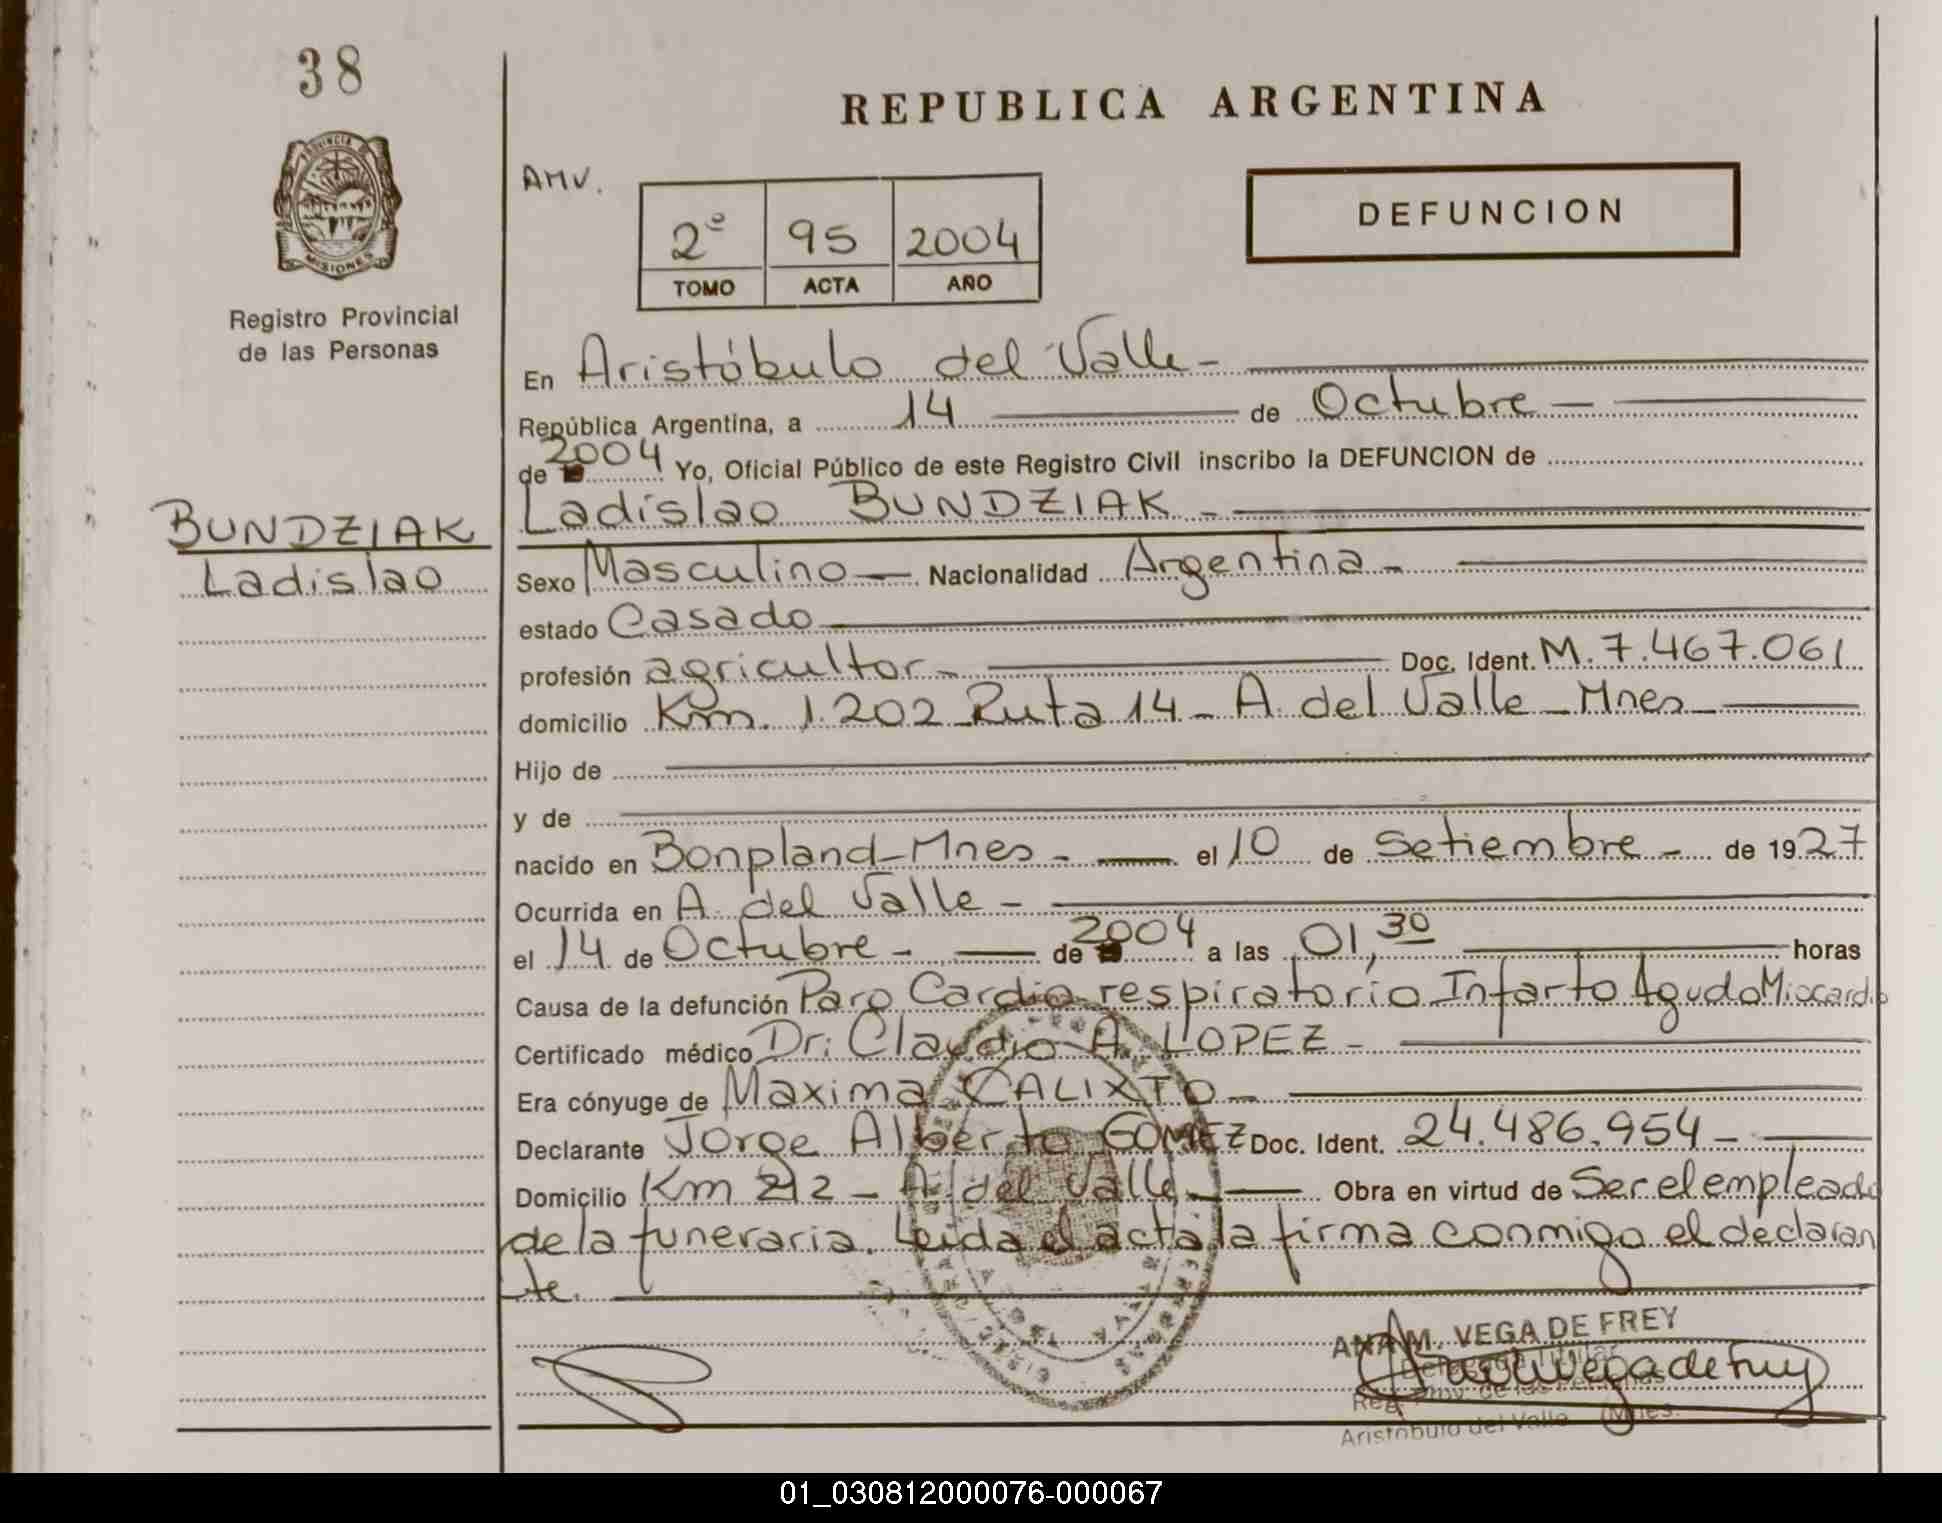 38
PROVINCIA DE
MISIONES
Registro Provincial
de las Personas
BUNDZIAK
Ladislao
REPUBLICA ARGENTINA
AMV.
2º 95 2004
TOMO ACTA AÑO
DEFUNCION
En Aristóbulo del Valle -
República Argentina, a 14 de Octubre -
de 2004 Yo, Oficial Público de este Registro Civil inscribo la DEFUNCION de
Ladislao BUNDZIAK -
Sexo Masculino - Nacionalidad Argentina -
estado Casado
profesión agricultor - Doc. Ident. M. 7.467.061
domicilio Km. 1.202 Ruta 14 - A. del Valle - Mnes -
Hijo de
y de
nacido en Bonpland - Mnes - el 10 de Setiembre - de 1927
Ocurrida en A. del Valle -
el 14 de Octubre - de 2004 a las 01,30 horas
Causa de la defunción Paro Cardio respiratorio Infarto Agudo Miocardio
Certificado médico Dr. Claudio A. LOPEZ -
Era cónyuge de Maxima CALIXTO -
Declarante Jorge Alberto GOMEZ Doc. Ident. 24.486.954 -
Domicilio Km 212 - A. del Valle - Obra en virtud de Ser el empleado
de la funeraria. Leida el acta la firma conmigo el declaran
te.
ANA M. VEGA DE FREY
Delegada Titular
Aristobulo del Valle (Mnes.
01_030812000076-000067